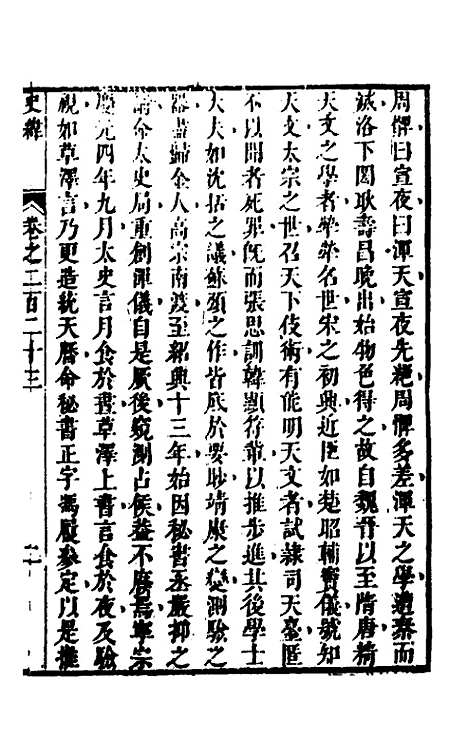 周髀曰宣夜曰渾天宣夜先絶周髀多差渾天之學遭秦而
滅洛下閎耿壽昌晚出始物色得之故自魏晉以至隋唐精
天文之學者犖犖名世宋之初興近臣如楚昭輔竇儀號知
天文太宗之世召天下伎術有能明天文者試隸司天臺匿
不以聞者死罪旣而張思訓韓顯符輩以推步進其後學士
大夫如沈括之議蘇頌之作皆底於要眇靖康之變測驗之
器盡歸金人高宗南渡至紹興十三年始因秘書丞嚴抑之
請命太史局重創渾儀自是厥後窺測占候葢不廢焉寧宗
慶元四年九月太史言月食於晝草澤上書言食於夜及驗
視如草澤言乃更造統天曆命秘書正字馮履參定以是推
史緯
卷之二百二十三